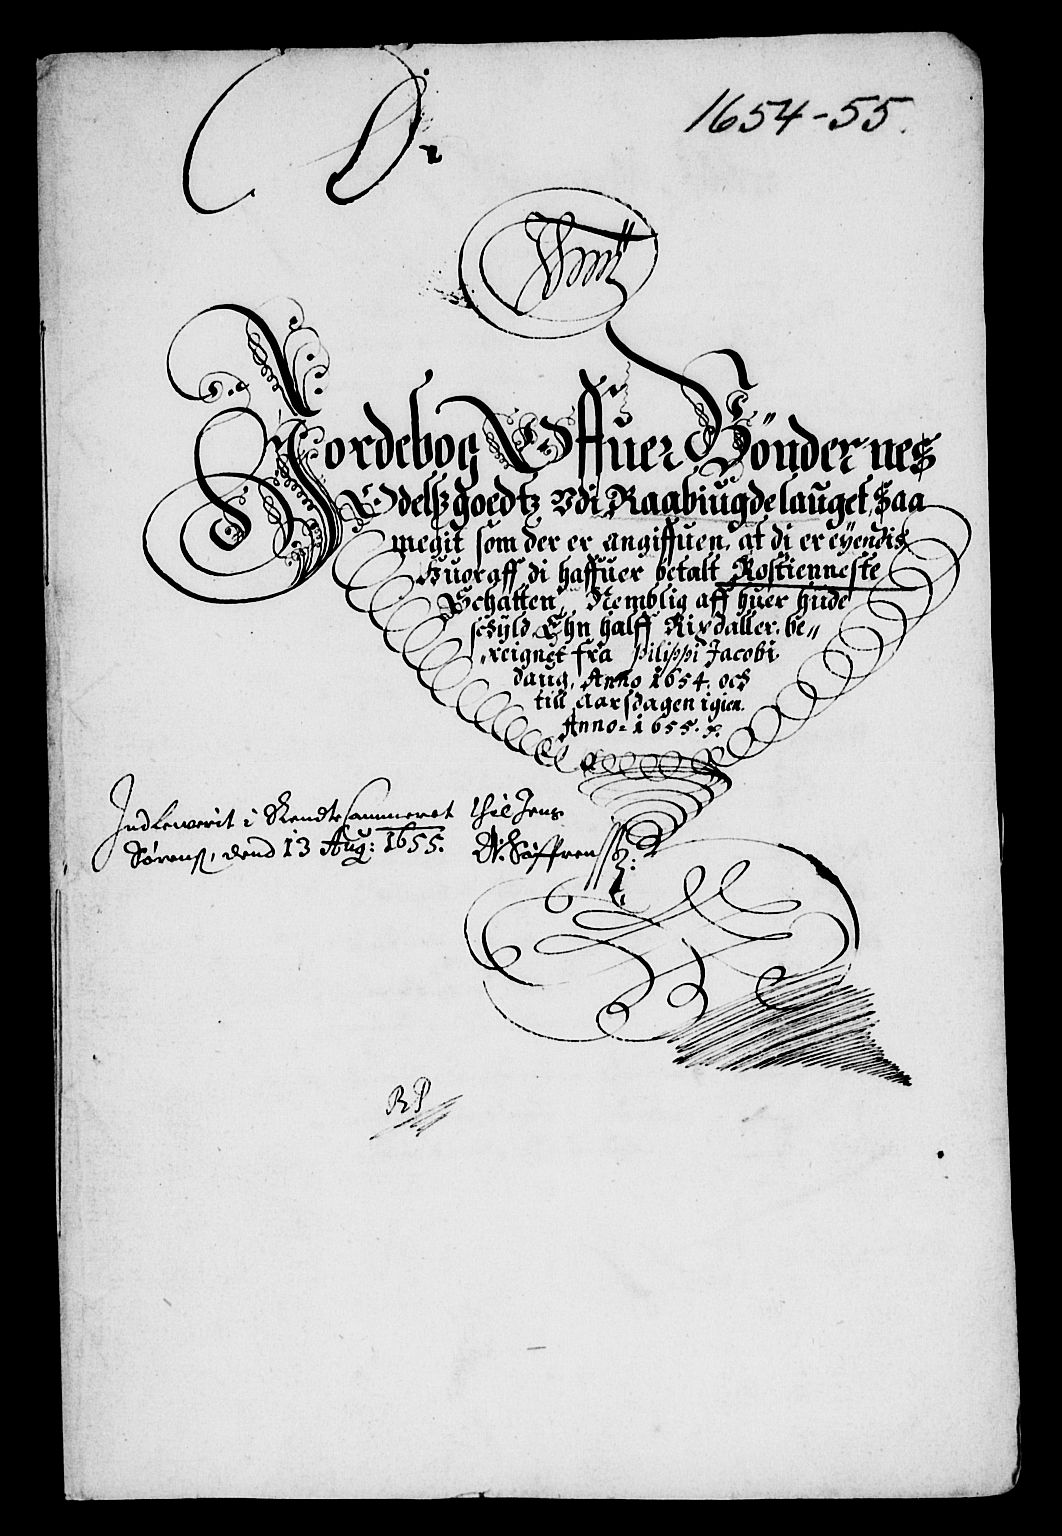 1654-55.
Jordebog Offuer Böndernes
Odelszgoedtz Vdi Raabiugdelauget, Saa
megit som der er angiffuen, at di er eyendis
Huoraff di haffuer betalt Rostienneste
Schatten, Nemblig aff huer hude
schyld Ehn halff Rixdaller, be„
reignet fra Philippi Jacobi
daug, Anno 1654. och
till aarsdagen igien.
Anno. 1655.
Indlewerit i Rendte Cammeret thil Jens
Sørens, dend 13 Aug: 1655. Søffrens
RP